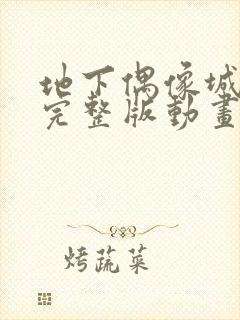 地下偶像城
完整版動畫
烤蔬菜